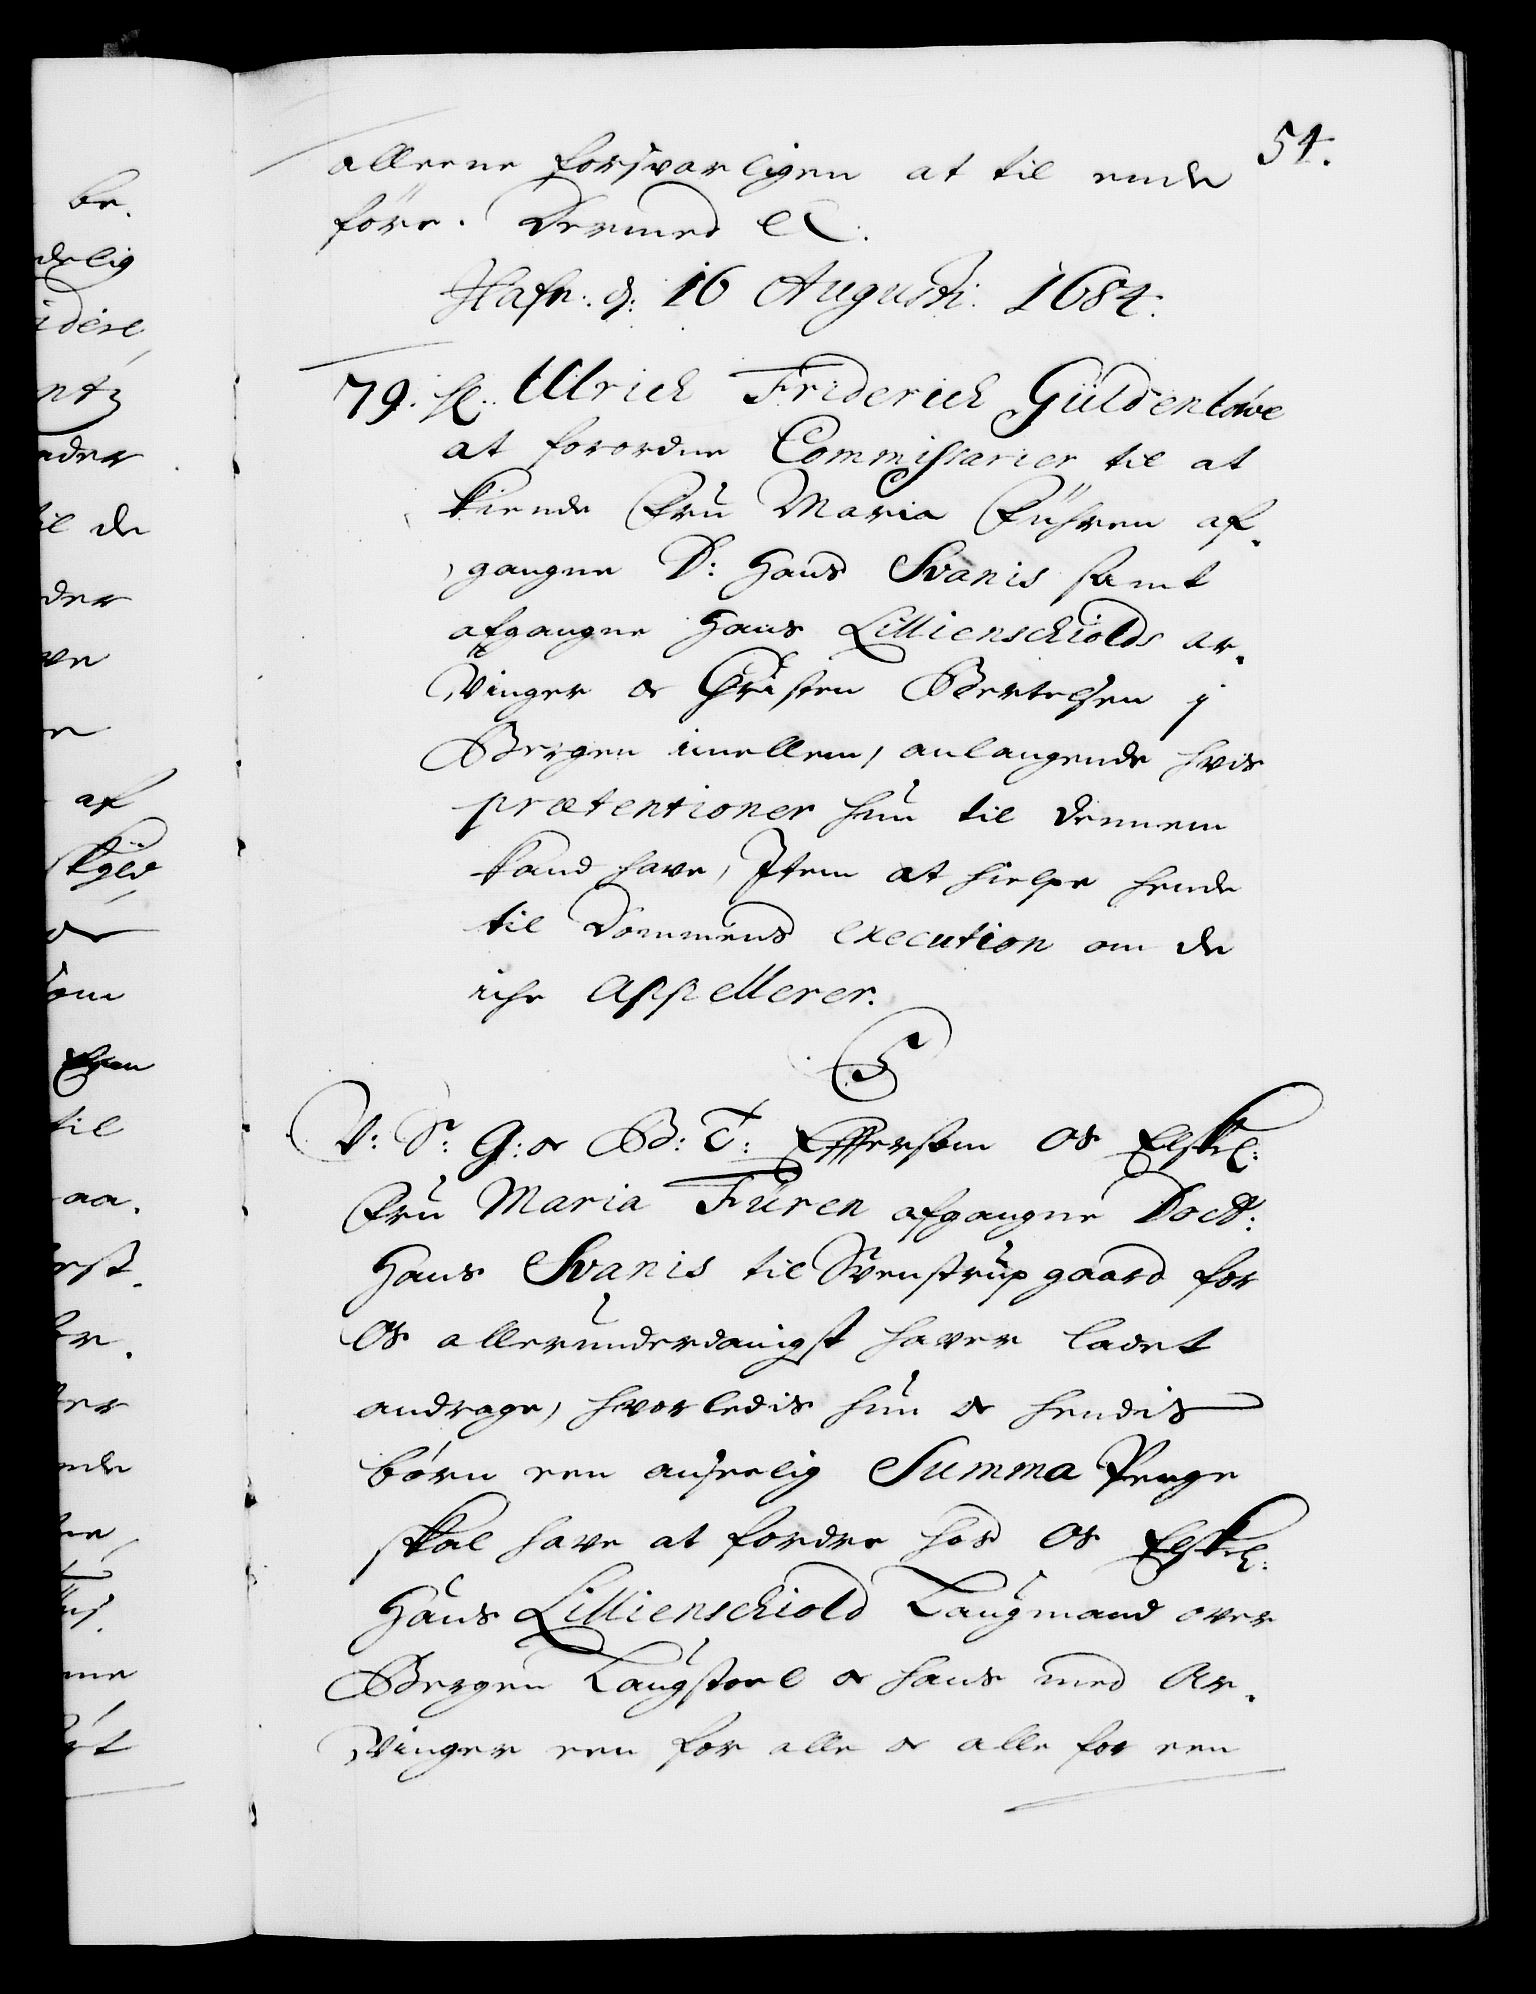 54.
alleene forsvarligen at til ende
före. Dermed &c.
Hafn: d: 16 Augusti 1684.
79. Ulrich Friderich Güldenlöwe
at forordne Commissarier til at
kiende Fru Maria Führen af-
gangne D: Hans Svanis samt
afgangne Hans Lillienschiolds ar-
vinger og Christen Bertelsen i
Bergen imellem, anlangende hvis
prætentioner hun til dennem
kand have, Item at hielpe hende
til Dommens execution om de
iche Appellerer.
C5
V: S: G: og B: T: Eftersom Os Elskel:
Fru Maria Füren afgangne Doct:
Hans Svanis til Svenstrupgaard for
Os allerunderdanigst haver ladet
andrage, hvorledis hun og hendis
börn een anseelig Summa Penge
skal have at fordre hos Os Elskel:
Hans Lillienschiold Laugmand over
Bergen Laugstoel og hans med Ar-
vinger een for alle og alle for een
be-
delig
idere
ntz
nder
til de
der
ve
af
skyld
og
som
til
aa-
erst-
er
nde
me